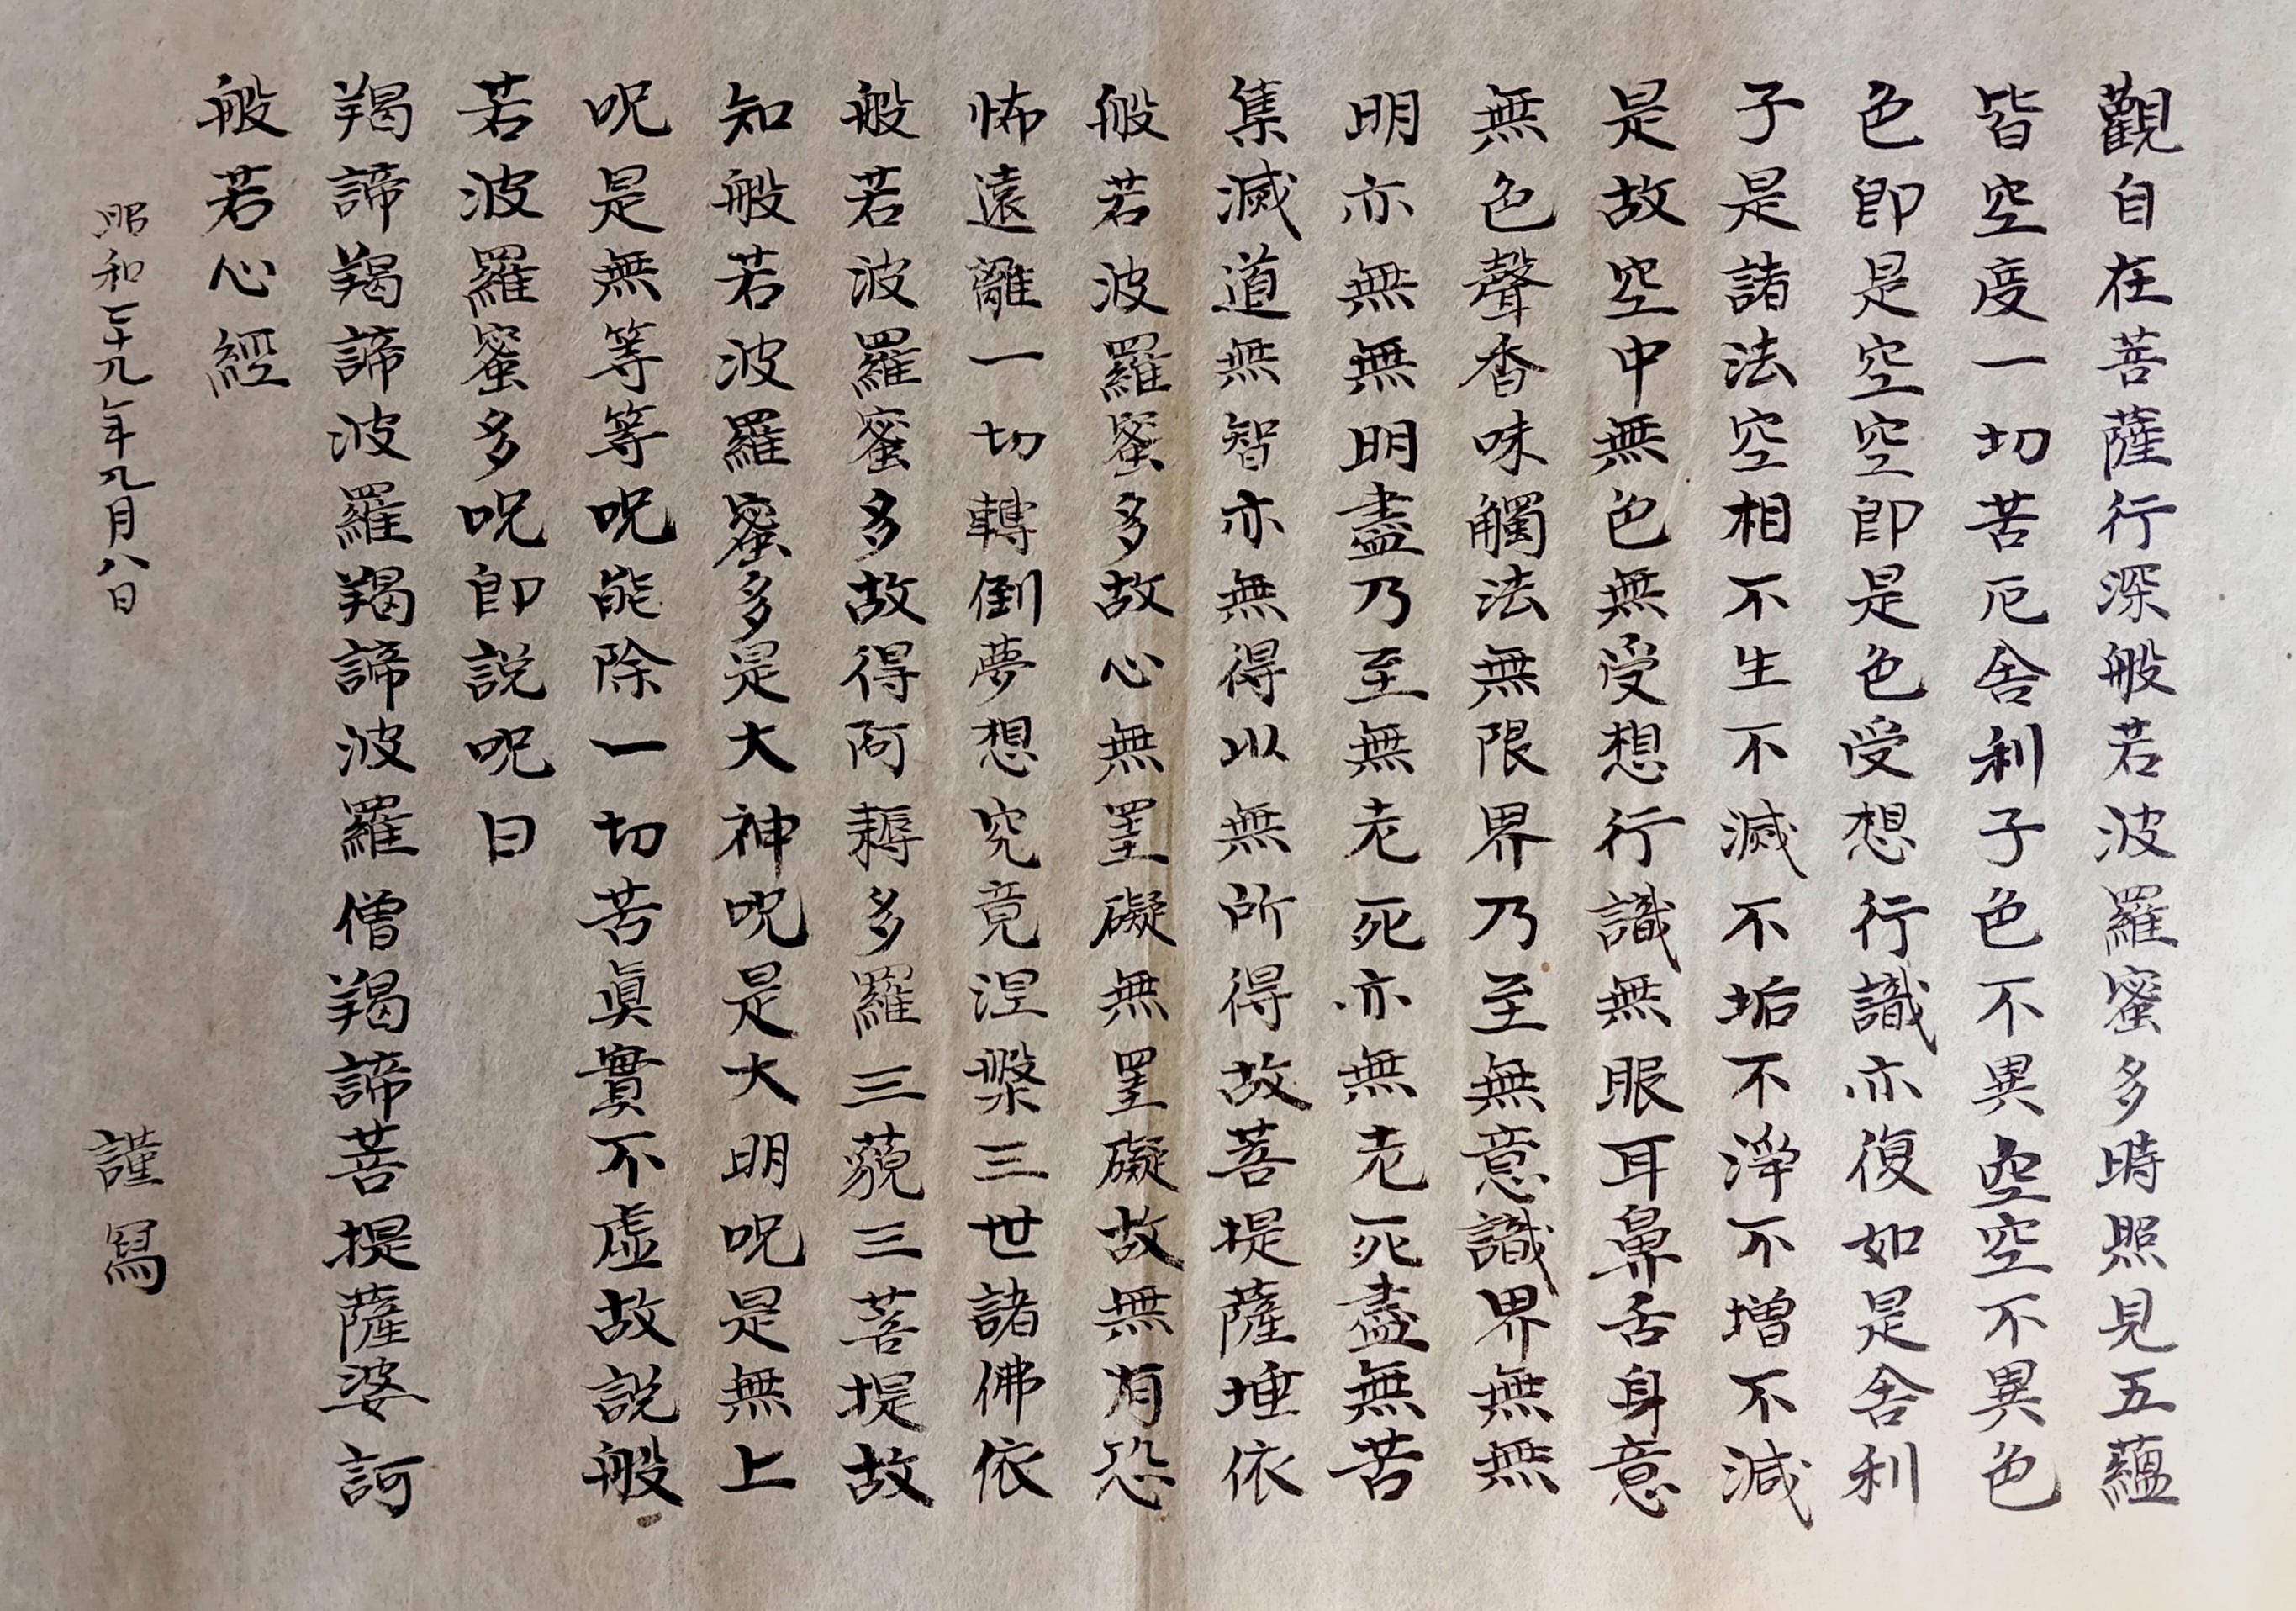 觀自在菩薩行深般若波羅蜜多時照見五蘊
皆空度一切苦厄舍利子色不異空空不異色
色即是空空即是色受想行識亦復如是舍利
子是諸法空相不生不滅不垢不淨不增不減
是故空中無色無受想行識無眼耳鼻舌身意
無色聲香味觸法無限界乃至無意識界無無
明亦無無明盡乃至無老死亦無老死盡無苦
集滅道無智亦無得以無所得故菩提薩埵依
般若波羅蜜多故心無罣礙無罣礙故無有恐
怖遠離一切轉倒夢想究竟涅槃三世諸佛依
般若波羅蜜多故得阿耨多羅三藐三菩提故
知般若波羅蜜多是大神呪是大明呪是無上
呪是無等等呪能除一切苦眞實不虛故説般
若波羅蜜多呪即説呪曰
羯諦羯諦波羅羯諦波羅僧羯諦菩提薩婆訶
般若心經
昭和二十九年九月八日 謹冩